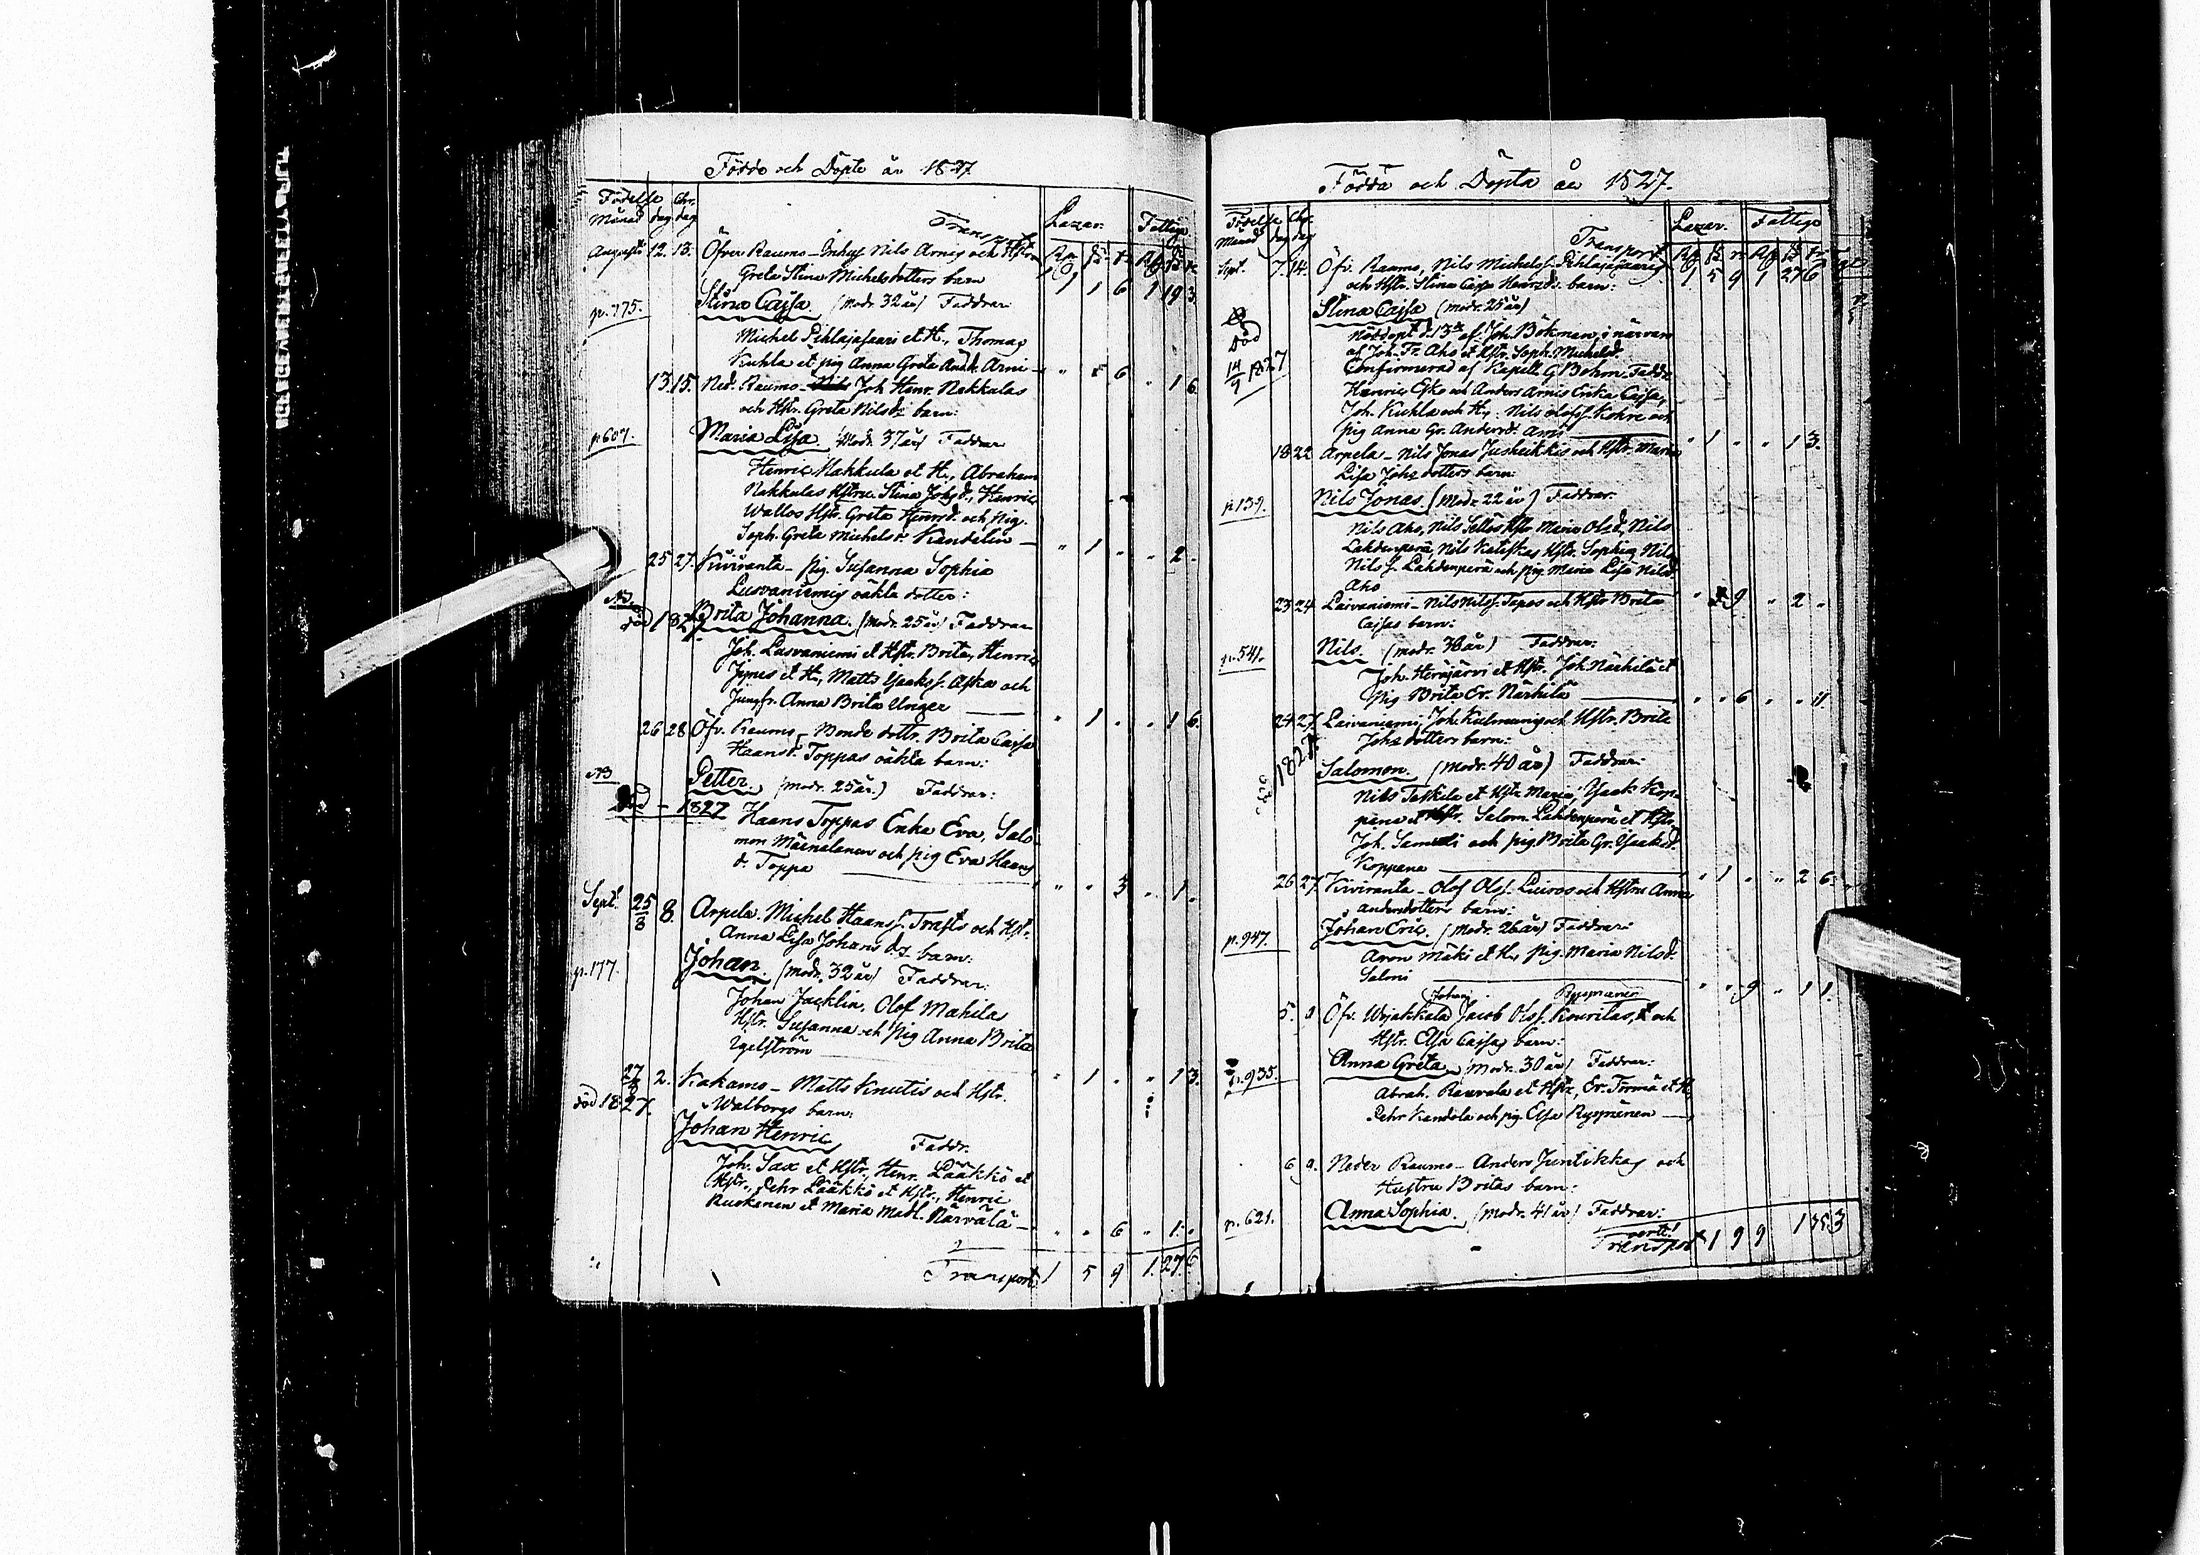 Födde och Döpte år 1827
Födelse Chr.
Månad dag dag
Lazar. Fattige
Transport
Augusti 12. 13. Öfver Raumo - Inhys Nils Arnis och Hstr
Greta Stina Michelsdotters barn
1 6 1 19 3.
p. 775. Stina Cajsa. (Modr 32 år) Faddrar
Michel Pihlajasaari et H., Thomas
Kuhla et pig Anna Greta Andr. Arni - " 5 6 " 1 6
13. 15. Ned. Raumo - Joh Henr. Nakkulas
och Hstr. Greta Nilsdr barn:
p 607. Maria Lisa. (Modr. 37 år) Faddrar
Henric Nakkula et H., Abraham
Nakkulas Hstru Stina Johsd., Henric
Wallos Hstr. Greta Henrsd. och pig
Soph. Greta Michelsdr Kandelin - " 1 " " 2 "
25 27. Kiviranta - pig. Susanna Sophia
Lusvaniemis oäkta dotter:
NB
död 1827. Brita Johanna. (Modr. 25 år) Faddrar
Joh. Lusvaniemi et Hstr. Brita, Henric
et H., Matts Isaakss. och
Jungfr. Anna Brita Unger - " 1 " " 1 6
26 28 Öfr. Raumo - Bonde dottr. Brita Cajsa
Haansd. Toppas oäkta barn:
NB
Petter. (modr. 25 år.) Faddrar:
Död - 1827 Haans Toppas Enka Eva, Salo-
mon Mäenalanen och pig Eva Haans
d. Toppa - " " 3 " 1 "
Sept. 25/8 8 Arpela. Michel Haanss. Trasts och Hstr.
Anna Lisa Johans drs barn:
p. 177. Johan. (Modr. 32 år) Faddrar:
Johan Jacklin, Olof Mahila
Hstr. Susanna och pig Anna Brita
Igelström - " 1 " " 1 3.
27/8 2. Kakamo - Matts Knutis och Hstr.
död 1827. Walborgs barn:
Johan Henric Faddr.
Joh. Sax et Hstr., Henr. Lääkkö et
Hstr., Pehr Lääkkö et Hstr., Henric
Ruokanen et Maria Madl. Närvälä - " " 6 " 1. "
Transport 1 5 9 1. 27. 6
Födda och Döpta år 1827.
Födelse Chr.
Månad dag dag
Lazar. Fattige
Transport
Sept. 7. 14. Öfv. Raumo, Nils Michelss. Pihlajasaaris
och Hstr. Stina Cajsa Henrsdr. barn:
1 5 9 1 27 6
Stina Cajsa (modr. 25 år)
Död 14/9 1827
Nöddöpt d. 13de af Joh. Bökman, i närvaro
af Joh. Fr. Aho et Hstr. Soph. Michelsd.
Confirmerad af Kapell. G. Bohm. Faddr.
Henric och Anders Arnis Enka Cajsa,
Joh. Kuhla och H., Nils Olofss. Kohre och
pig Anna Gr. Andersdr. Arni - " 1 " " 1 3.
18 22 Arpela - Nils Jonas Jusheikkis och Hstr. Maria
Lisa Johs dotters barn:
p 139. Nils Jonas. (Modr. 22 år) Faddrar.
Nils Aho, Nils Hstr Maria Olsd., Nils
Lahdenperä, Nils Katiskas Hstr. Sophia, Nils
Nils s. Lahdenperä och pig Maria Lisa Nilsd.
Aho - " 9 " 2 "
23 24 Laivaniemi - Nils Nilss. Tapos och Hstr Brita
Cajsas barn:
p. 541. Nils. (modr. 30 år) Faddrar.
Joh. Heräjärvi et Hstr. Joh. Närhilä et
pig Brita Er. Närhilä - " " 6 " " 11.
24 27. Laivaniemi, Joh. Kulmunis och Hstr. Brita
Johs dotters barn:
död 1827. Salomon. (Modr. 40 år) Faddrar:
Nils Taskila et Hstr Maria, Isack Kop-
pana et Hstr. Salom. Lahdenperä et Hstr.,
Joh. Samueli och pig Brita Gr. Isaaksd.
Koppana - " 1 " " 2 6.
26 27. Kiviranta - Olof Olss. Luiros och Hstru Anna
Andersdotters barn:
p. 947. Johan Eric. (Modr. 26 år) Faddrar:
Aron Mäki et H., pig. Maria Nilsd.
Salmi - " " 9 " 1 1.
Johan Ryynänen
5. 9 Öfv. Wojakkala Jacob Olss. Kouritas, och
Hstr. Elsa Cajsas barn:
p. 935. Anna Greta. (Modr. 30 år) Faddrar:
Abrah. Rauvala et Hstr., Er. Tormä et H.,
Pehr Kandela och pig Elsa Ryynänen -
6 9. Neder Raumo - Anders Juntikkas och
Hustru Britas barn:
p. 621. Anna Sophia. (Modr. 41 år) Faddrar:
vert!
Transport 1 9 9 1 35 3